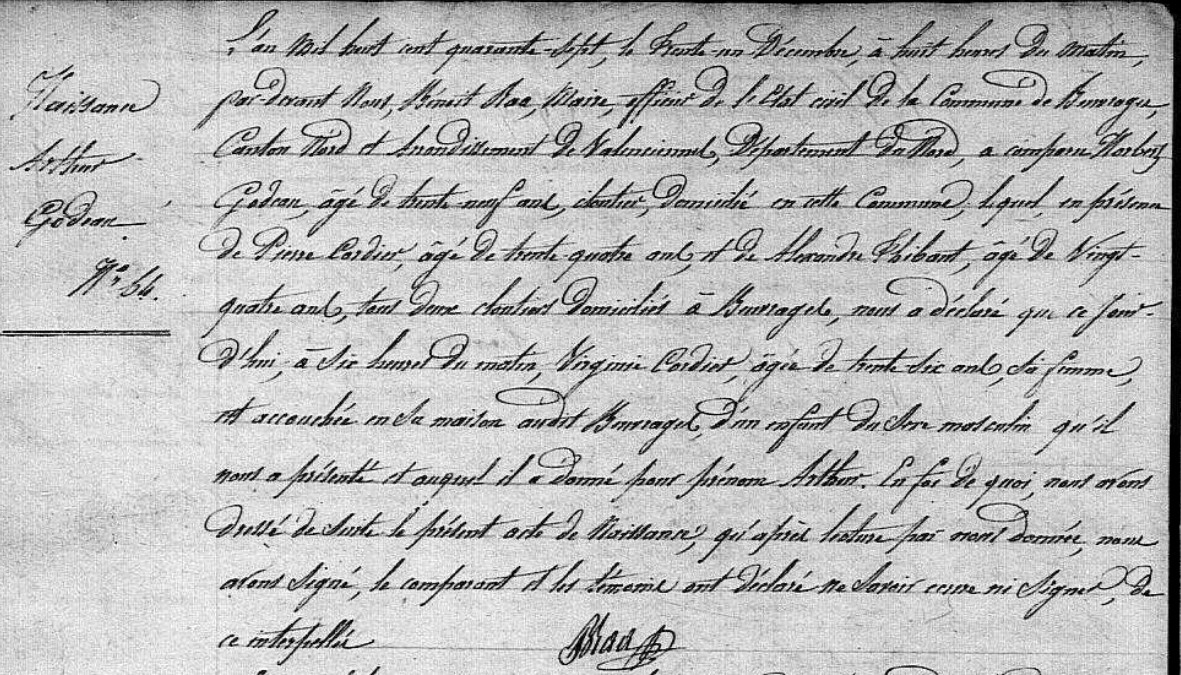 Naissance
Arthur
Godeau
N° 54.
L'an Mil huit cent quarante-sept, le trente-un Décembre, à huit heures du matin,
par-devant Nous, Benoit Raa, Maire, officier de l'Etat civil de la Commune de Beuvrages,
Canton Nord et Arrondissement de Valenciennes, Département du Nord, a comparu Norbert
Godeau, âgé de trente-neuf ans, cloutier, domicilié en cette Commune, lequel, en présence
de Pierre Cordier, âgé de trente-quatre ans, et de Alexandre Thibaut, âgé de Vingt-
quatre ans, tous deux cloutiers domiciliés à Beuvrages, nous a déclaré que ce jour-
d'hui, à six heures du matin, Virginie Cordier, âgée de trente six ans, sa femme,
est accouchée en sa maison audit Beuvrages, d'un enfant du sexe masculin qu'il
nous a présenté et auquel il a donné pour prénom Arthur. En foi de quoi, nous avons
dressé de suite le présent acte de Naissance, qu'après lecture par nous donnée, nous
avons signé, le comparant et les témoins ont déclaré ne savoir écrire ni signer, de
ce interpellés
BRaa